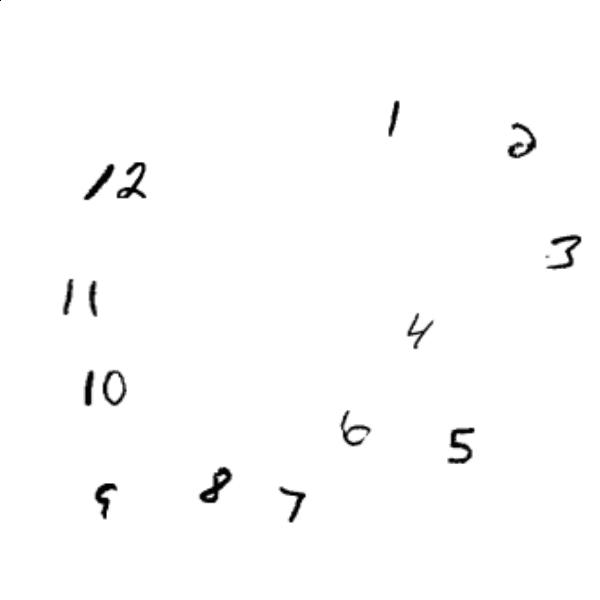 1
2
12
3
11
4
10
6
5
9
8
7